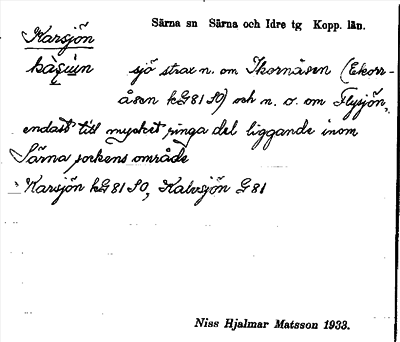 Karsjön
Särna sn Särna och Idre tg Kopp. län.
kàsiųn sjö strax n. om Ikornåsen (Ekorr-
åsen kG81SO) och n. o. om Flysjön,
endast till mycket ringa del liggande inom
Särna sockens område
Karsjön kG81SO, Kalvsjön G81
Niss Hjalmar Matsson 1933.